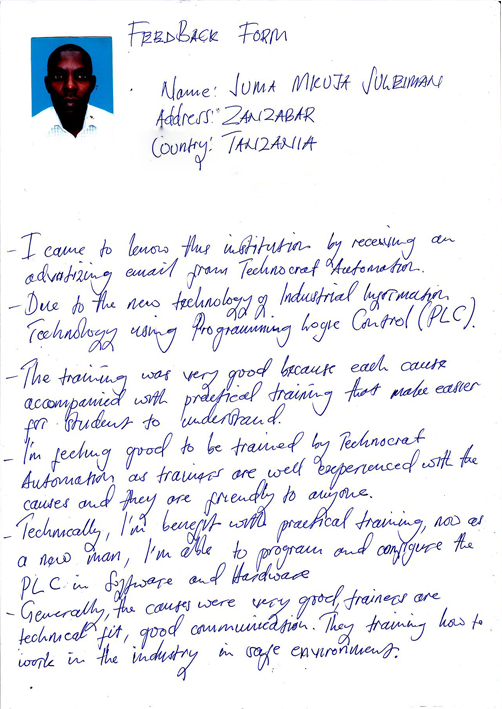 FEEDBACK FORM
Name: JUMA MKUJA SULEIMAN
Address: ZANZABAR
Country: TANZANIA
- I came to know this institution by receiving an
advertizing email from Technocrat Automation.
- Due to the new technology of Industrial Information
Technology using Programming Logic Control (PLC).
- The training was very good because each cause
accompanied with practical training that make easier
for student to understand.
- I'm feeling good to be trained by Technocrat
Automation as trainers are well experienced with the
causes and they are friendly to anyone.
- Technically, I'm benefit with practical training, now as
a new man, I'm able to program and configure the
PLC in Software and Hardware
- Generally, the causes were very good, trainers are
technical fit, good communication. They training how to
work in the industry in safe environment.